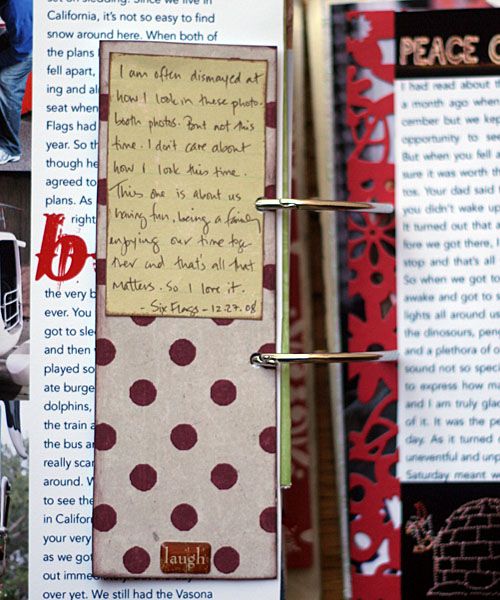 set on sledding. Since we live in
California, it's not so easy to find
snow around here. When both of
the plans
fell apart,
ing and al
seat when
Flags had
year. So th
though he
agreed to
plans. As
right
b
the very b
ever. You
got to slee
and then
played so
ate burge
dolphins,
the train a
the bus ar
really scar
around. W
to see the
in Califor
your very
as we got
out immediately
over yet. We still had the Vasona
I am often dismayed at
how I look in these photo-
booth photos. But not this
time. I don't care about
how I look this time.
This one is about us
having fun, being a family
enjoying our time toge
ther and that's all that
matters. So I love it.
- Six Flags - 12.27.08
laugh
PEACE O
I had read about th
a month ago when
cember but we kep
opportunity to see
But when you fell a
sure it was worth th
tos. Your dad said
you didn't wake up
It turned out that a
fore we got there, I
stop and that's all
So when we got to
awake and got to s
lights all around us
the dinosours, peng
and a plethora of o
sound not so speci
to express how mu
and I am truly glad
of it. It was the pe
day. As it turned o
uneventful and unp
Saturday meant w